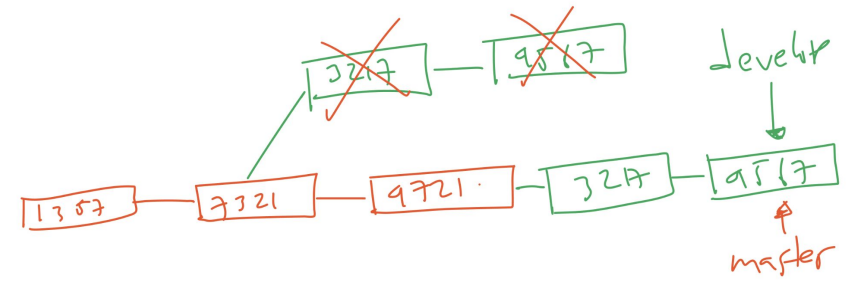 3217 9567
develop
1357 7321 9721 3217 9567
master